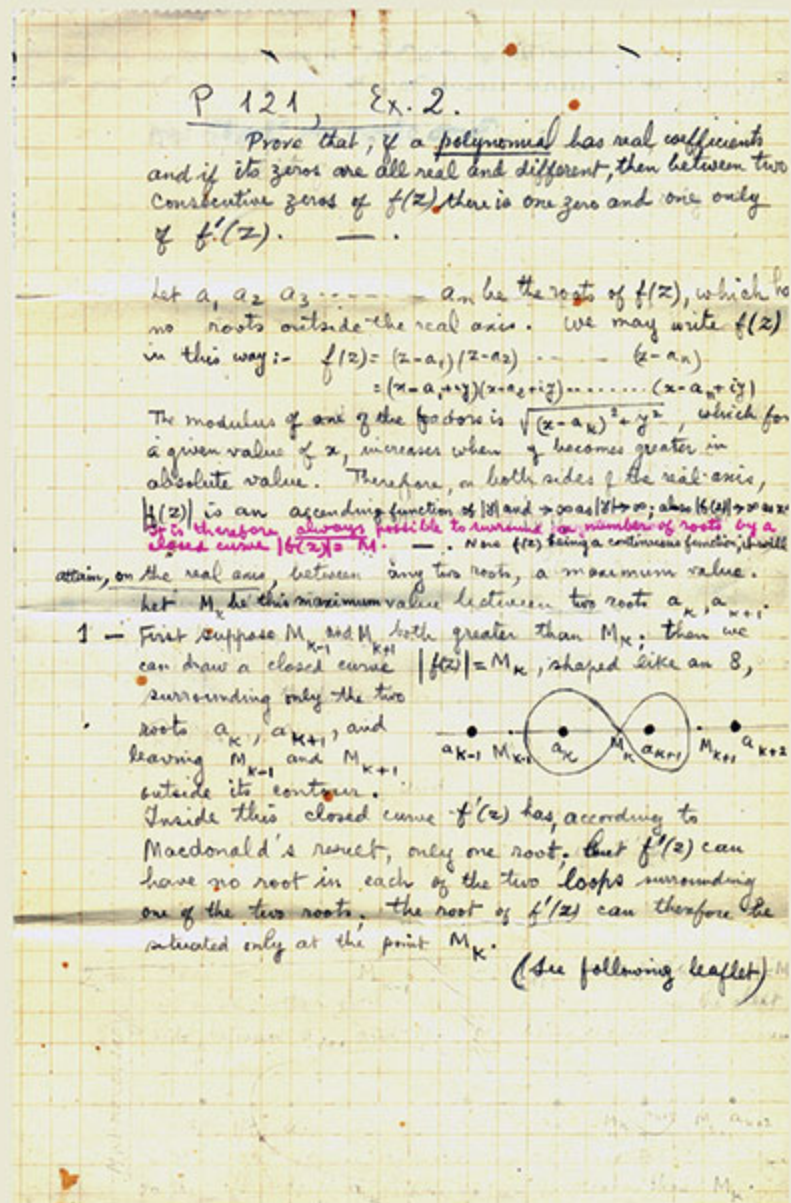 P 121, Ex. 2.
Prove that, if a polynomial has real coefficients
and if its zeros are all real and different, then between two
consecutive zeros of f(z) there is one zero and one only
of f'(z). — .
Let a₁ a₂ a₃ ------- aₙ be the roots of f(z), which ha
no roots outside the real axis. We may write f(z)
in this way:- f(z) = (z-a₁)(z-a₂) ------ (z-aₙ)
= (x-a₁+iy)(x-a₂+iy)........(x-aₙ+iy)
The modulus of one of the factors is √(x-aₖ)²+y², which for
a given value of x, increases when y becomes greater in
absolute value. Therefore, on both sides of the real axis,
|f(z)| is an ascending function of |y| and →∞ as |y|→∞; also |f(z)|→∞ as x
It is therefore always possible to surround a number of roots by a
closed curve |f(z)| = M. — . Now f(z) being a continuous function, it will
attain, on the real axis, between any two roots, a maximum value.
Let Mₖ be this maximum value between two roots aₖ, aₖ₊₁.
1 - First suppose Mₖ₋₁ and Mₖ₊₁ both greater than Mₖ; then we
can draw a closed curve |f(z)| = Mₖ, shaped like an 8,
surrounding only the two
roots aₖ, aₖ₊₁, and
leaving Mₖ₋₁ and Mₖ₊₁
outside its contour.
aₖ₋₁ Mₖ₋₁ aₖ Mₖ aₖ₊₁ Mₖ₊₁ aₖ₊₂
Inside this closed curve f'(z) has, according to
Macdonald's result, only one root; but f'(z) can
have no root in each of the two loops surrounding
one of the two roots; the root of f'(z) can therefore be
situated only at the point Mₖ.
(See following leaflet)